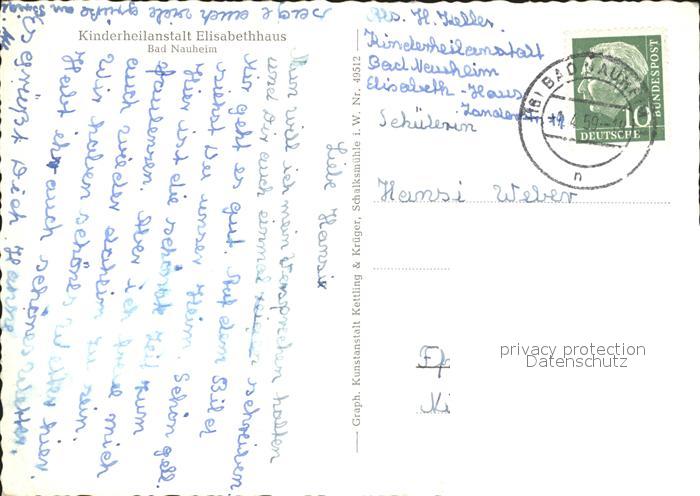 Kinderheilanstalt Elisabethhaus
Bad Nauheim
Liebe Hansi
Nun will ich mein Versprechen halten
und dir auch einmal schreiben
Mir geht es gut. Auf dem Bild
siehst Du unser Heim. Schön gell.
Hier ist die schönste Zeit zum
faulenzen. Aber ich freue mich
auch wieder daheim zu sein.
Wir haben schönes Wetter hier.
Habt ihr auch schönes Wetter.
Es grüßt Dich
sage auch viele Grüße an
Graph. Kunstanstalt Kettling & Krüger, Schalksmühle i. W. Nr. 49512
Abs. H. Zeller
Kinderheilanstalt
Bad Nauheim
Elisabeth-Haus
BAD NAUHEIM
4.59
n
10
DEUTSCHE
BUNDESPOST
Schülerin
Hansi Weber
privacy protection
Datenschutz